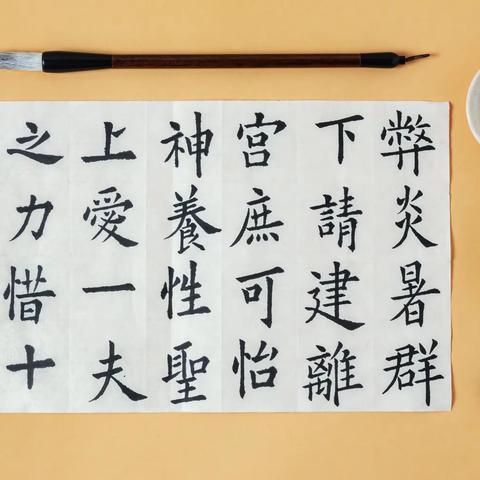 弊炎暑群
下請建離
宮庶可怡
神養性聖
上愛一夫
之力惜十